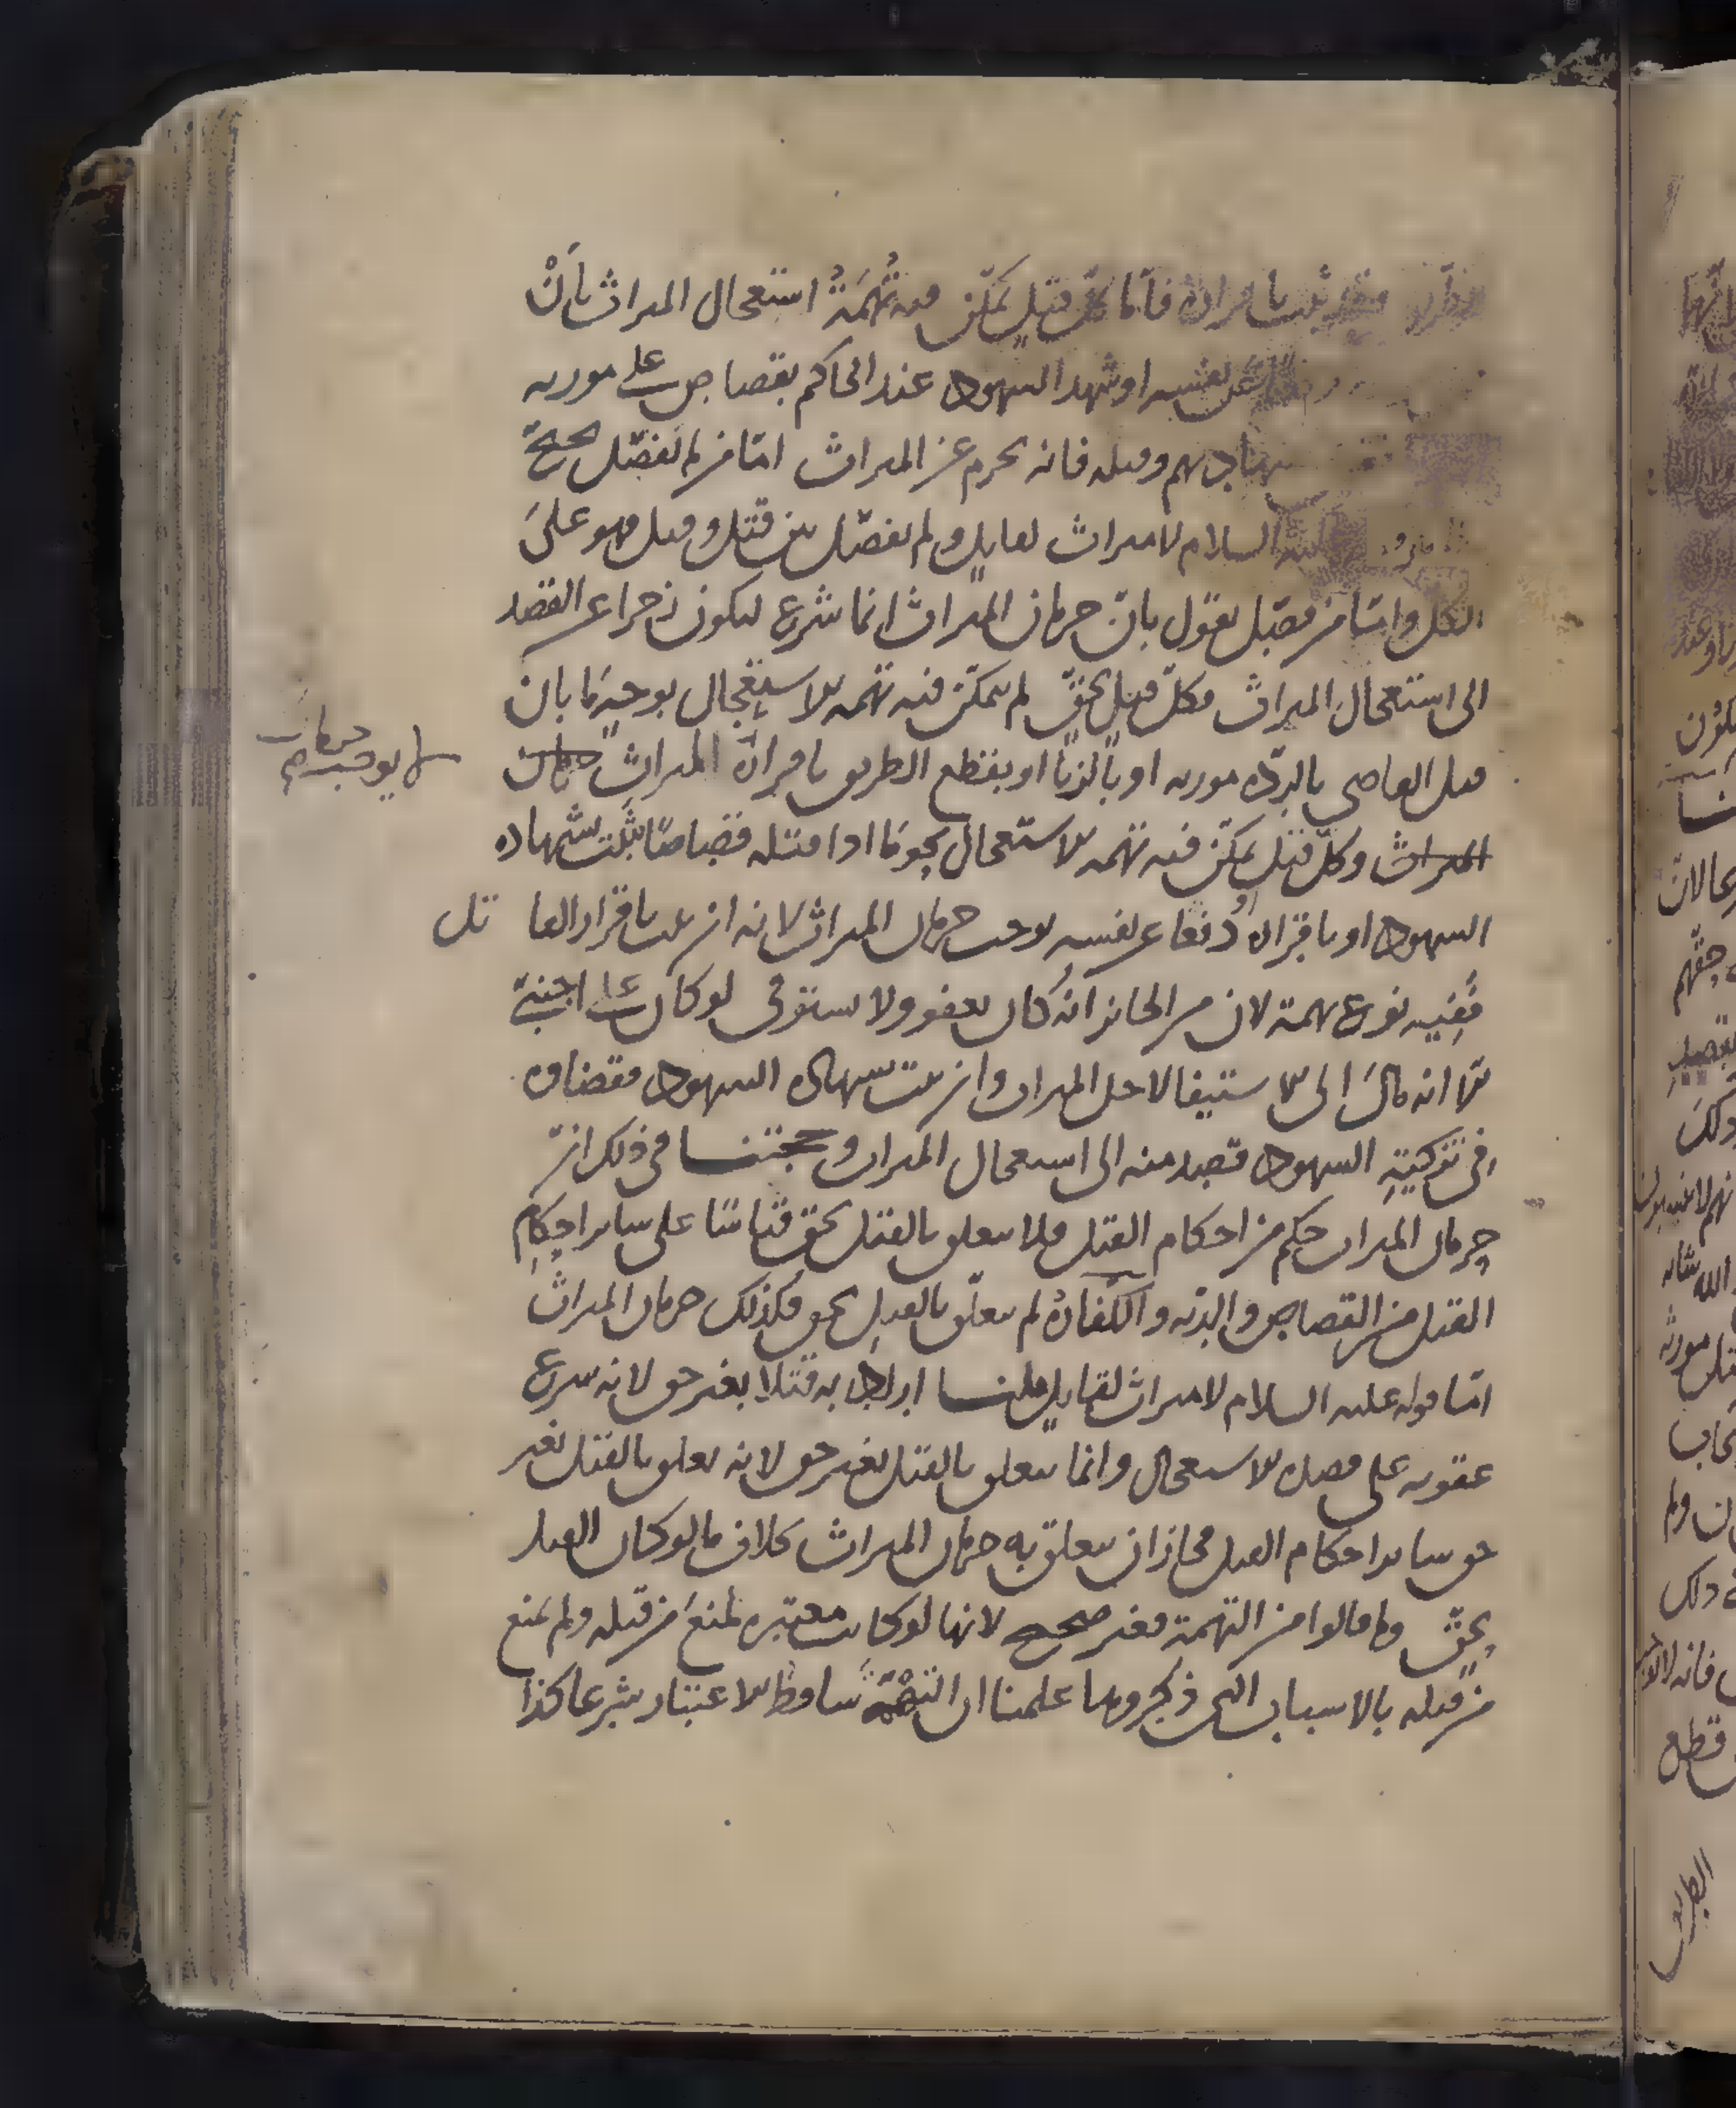 باقراره فأما كل قتل تمكن فيه تُهَمَةُ استعجال الميراث بأنْ
عن نفسه او شهد الشهود عند الحاكم بقصاص على مورثه
بشهادتهم وقتله فانه يحرم عن الميراث امّا من لم يُفصّل يحتجّ
عليه السلام لا ميراث لقاتل ولم يفصّل بين قتل وقتل فهو على
الكل وامّا من فصّل يقول بانّ حرمان الميراث انما شرع ليكون زجرا عن القصد
الى استعجال الميراث فكلّ قتل بحقّ لم يتمكّن فيه تهمه الاستعجال يوجبهَا بان
قتل العاصى بالردّه مورثه او بالزنا او بقطع الطريق باقراره الميراث حرمان
لا يوجب حرمان
الميراث وكلّ قتل تمكّن فيه تهمه الاستعجال نحو ما اذا قتله قصاصًا ثبت بشهاده
الشهود او باقراره او دفعا عن نفسه يوجب حرمان الميراث لانه ان ثبت باقرار القا تل
فَفِيه نوع تهمة لان من الجائز انه كان يعفو ولا يستوفى لو كان على اجنبىّ
امّا انه مال الى الاستيفا لاجل الميراث وان ثبت بشهاده الشهود فقضاؤه
فى تزكيةِ الشهود قصد منه الى استعجال الميراث وحجتنا فى ذلك انّ
حرمان الميراث حكم من احكام القتل فلا يتعلق بالقتل بحق قياسًا على سائر احكامِ
القتل من القصاص والديّه والكفارهُ لم يتعلّق بالقتل بحق فكذلك حرمان الميراث
امّا قوله عليه السلام لا ميراث لقاتل قلنا اراد به قتلا بغير حق لانه شرع
عقوبه على قصده الاستعجال وانما يتعلق بالقتل بغير حق لانه تعلق بالقتل بغير
حق سائر احكام القتل فجاز ان يتعلق به حرمان الميراث بخلاف ما لو كان القتل
بحقّ وما قالوا من التهمة فغير صحيح لانها لو كانت معتبره لمُنعَ من قتله ولم يمنع
من قتله بالاسباب التى ذكروها علمنا ان التهْمَة ساقطه الاعتبار شرعا كذا